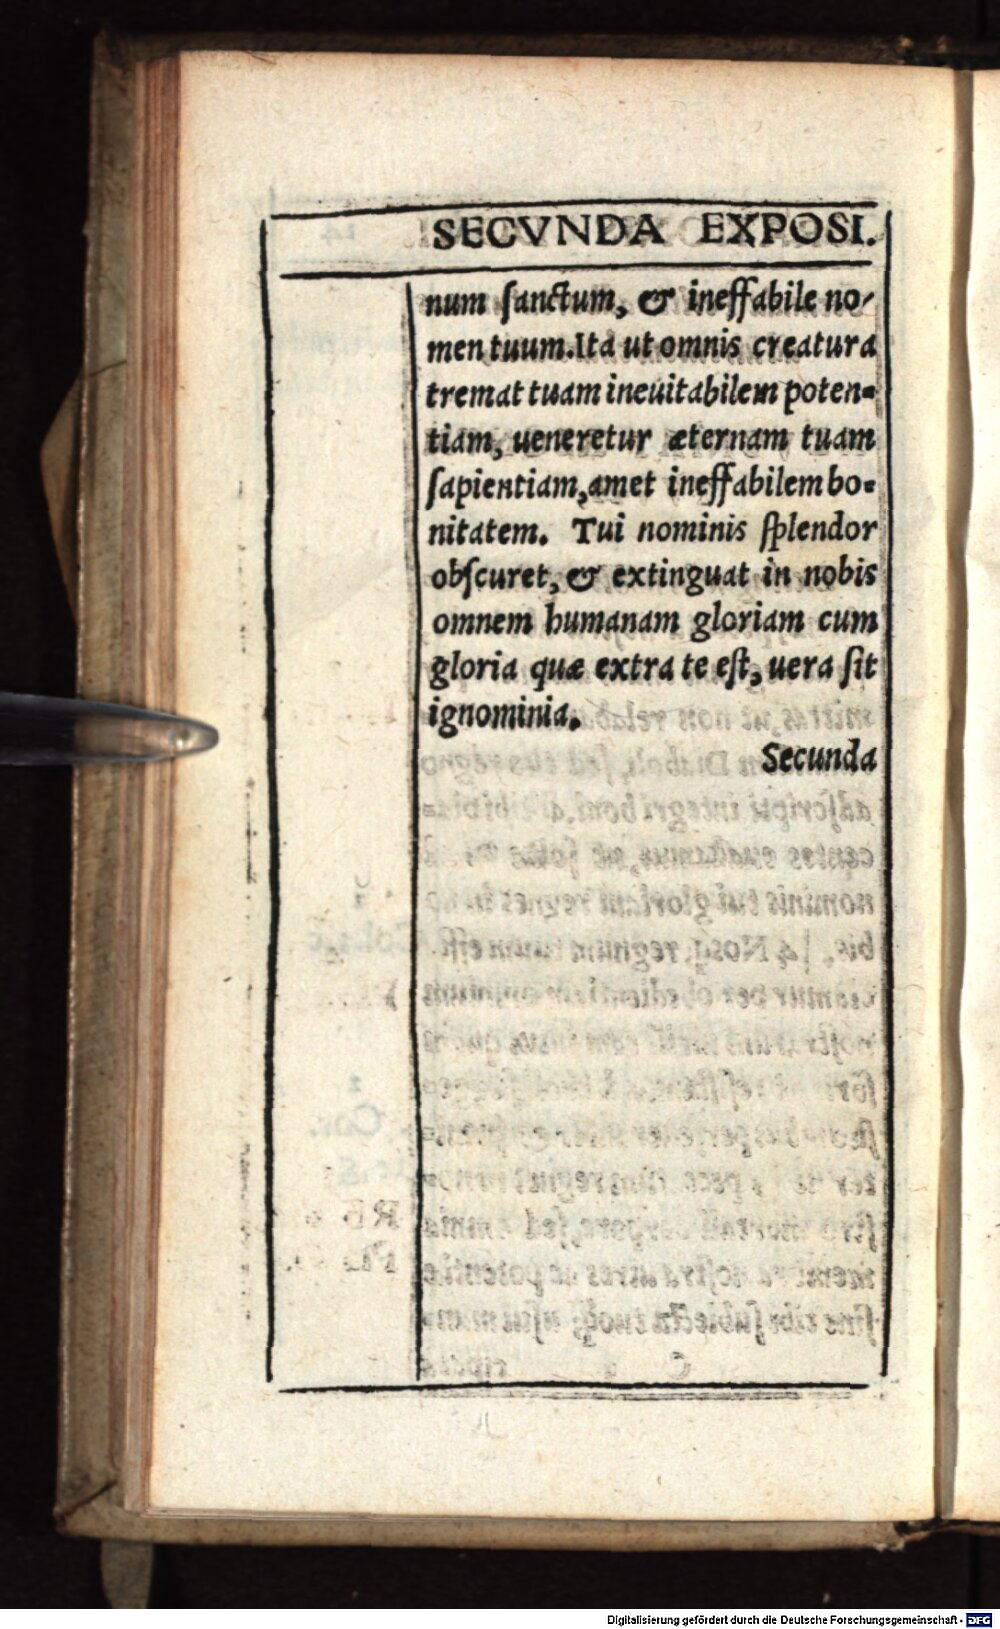 SECVNDA EXPOSI.
num sanctum, & ineffabile no-
men tuum. Ita ut omnis creatura
tremat tuam ineuitabilem poten=
tiam, ueneretur æternam tuam
sapientiam, amet ineffabilem bo=
nitatem. Tui nominis splendor
obscuret, & extinguat in nobis
omnem humanam gloriam cum
gloria quæ extra te est, uera sit
ignominia.
Secunda
Digitalisierung gefördert durch die Deutsche Forschungsgemeinschaft - DFG